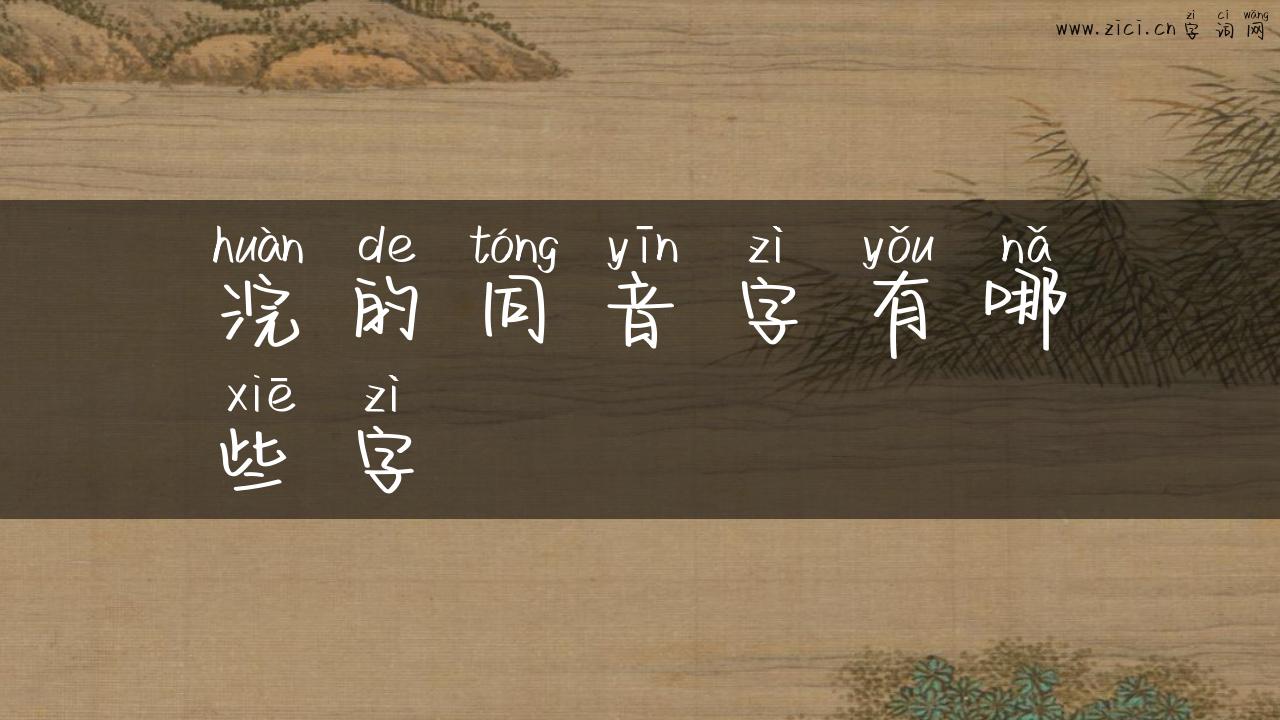 zì cí wǎng
www.zici.cn 字词网
huàn de tóng yīn zì yǒu nǎ
浣的同音字有哪
xiē zì
些字